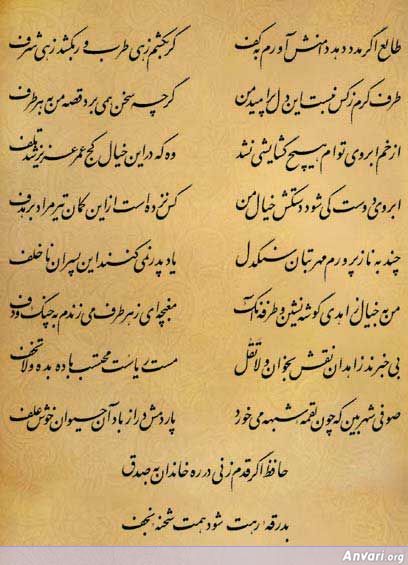 طالع اگر مدد دهد دامنش آورم به کف گر بکشم زهی طرب ور بکشد زهی شرف
طرف کرم ز کس نبست این دل پر امید من گرچه سخن همی برد قصه من به هر طرف
از خم ابروی توام هیچ گشایشی نشد وه که در این خیال کج عمر عزیز شد تلف
ابروی دوست کی شود دستکش خیال من کس نزده است از این کمان تیر مراد بر هدف
چند به ناز پرورم مهر بتان سنگدل یاد پدر نمی کنند این پسران ناخلف
من به خیال زاهدی گوشه نشین و طرفه آنک مغبچه ای ز هر طرف می زندم به چنگ و دف
بی خبرند زاهدان نقش بخوان و لا تقل مست ریاست محتسب باده بده و لا تخف
صوفی شهر بین که چون لقمه شبهه می خورد پاردمش دراز باد آن حیوان خوش علف
حافظ اگر قدم زنی در ره خاندان به صدق
بدرقه رهت شود همت شحنه نجف
Anvari.org